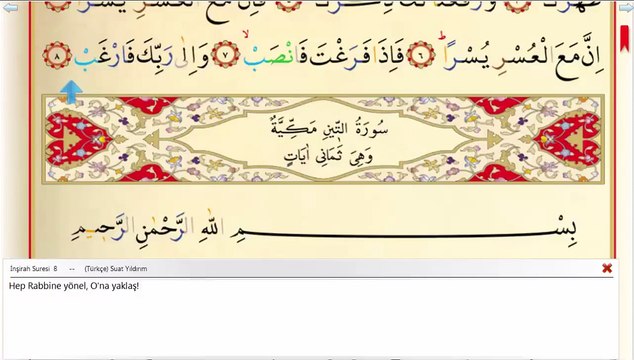 اِنَّ مَعَ الْعُسْرِ يُسْرًاۜ ٦ فَاِذَا فَرَغْتَ فَانْصَبْۙ ٧ وَاِلٰى رَبِّكَ فَارْغَبْ ٨
سُورَةُ التّ۪ينِ مَكِّيَّةٌ
وَهِىَ ثَمَانِى اٰيَاتٍ
بِسْمِ اللّٰهِ الرَّحْمٰنِ الرَّح۪يمِ
İnşirah Suresi 8 -- (Türkçe) Suat Yıldırım
Hep Rabbine yönel, O'na yaklaş!